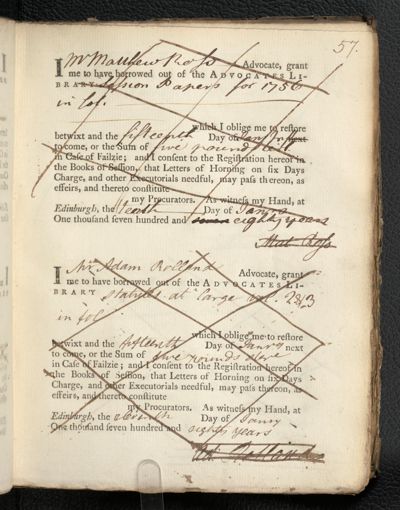 57.
I Mr Matthew Ross Advocate, grant
me to have borrowed out of the ADVOCATES LI-
BRARY Session Papers for 1756
in fol.
which I oblige me to restore
betwixt and the fifteenth Day of Janry next
to come, or the Sum of five pounds
in Case of Failzie; and I consent to the Registration hereof in
the Books of Session, that Letters of Horning on six Days
Charge, and other Executorials needful, may pass thereon, as
effeirs, and thereto constitute
my Procurators. As witness my Hand, at
Edinburgh, the tenth Day of Janry
One thousand seven hundred and eighty years
Mat. Ross
I Mr Adam Rolland Advocate, grant
me to have borrowed out of the ADVOCATES LI-
BRARY statutes at large vol. 2&3
in fol
which I oblige me to restore
betwixt and the fifteenth Day of Janry next
to come, or the Sum of five pounds
in Case of Failzie; and I consent to the Registration hereof in
the Books of Session, that Letters of Horning on six Days
Charge, and other Executorials needful, may pass thereon, as
effeirs, and thereto constitute
my Procurators. As witness my Hand, at
Edinburgh, the eleventh Day of Janry
One thousand seven hundred and eighty years